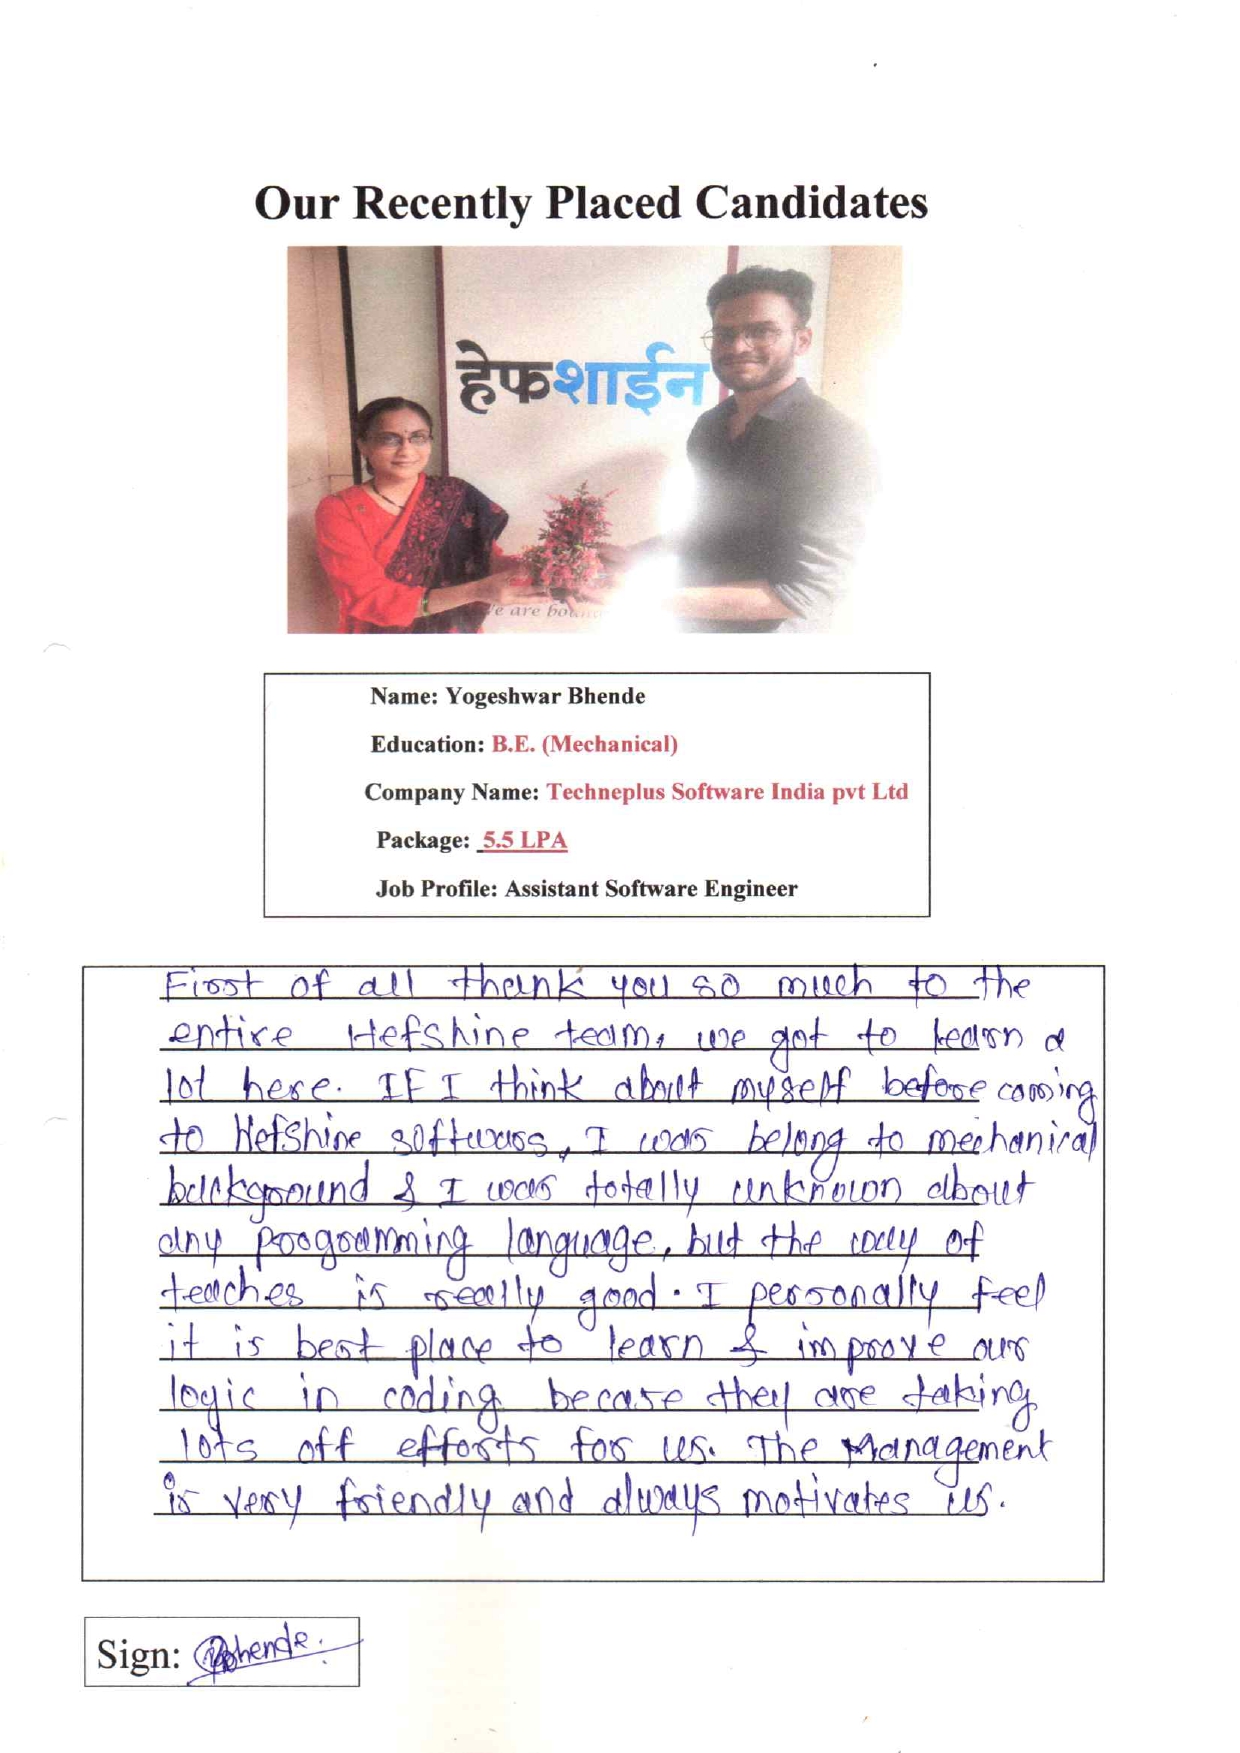 Our Recently Placed Candidates
हेफशाईन
We are bou
Name: Yogeshwar Bhende
Education: B.E. (Mechanical)
Company Name: Techneplus Software India pvt Ltd
Package: 5.5 LPA
Job Profile: Assistant Software Engineer
First of all thank you so much to the
entire Hefshine team, we got to learn a
lot here. IF I think about myself before coming
to Hefshine software, I was belong to mechanical
background & I was totally unknown about
any programming language, but the way of
teaches is really good. I personally feel
it is best place to learn & improve our
logic in coding becase they are taking
lots off efforts for us. The Management
is very friendly and always motivates us.
Sign: Bhende.